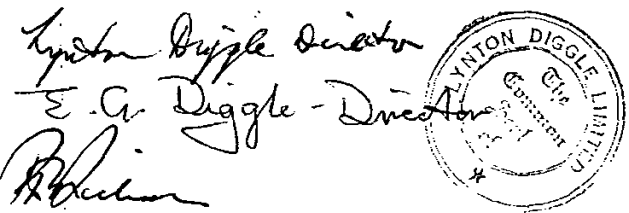 Lynton Diggle Director
E. G. Diggle - Director
LYNTON DIGGLE LIMITED
The
Common
Seal
of